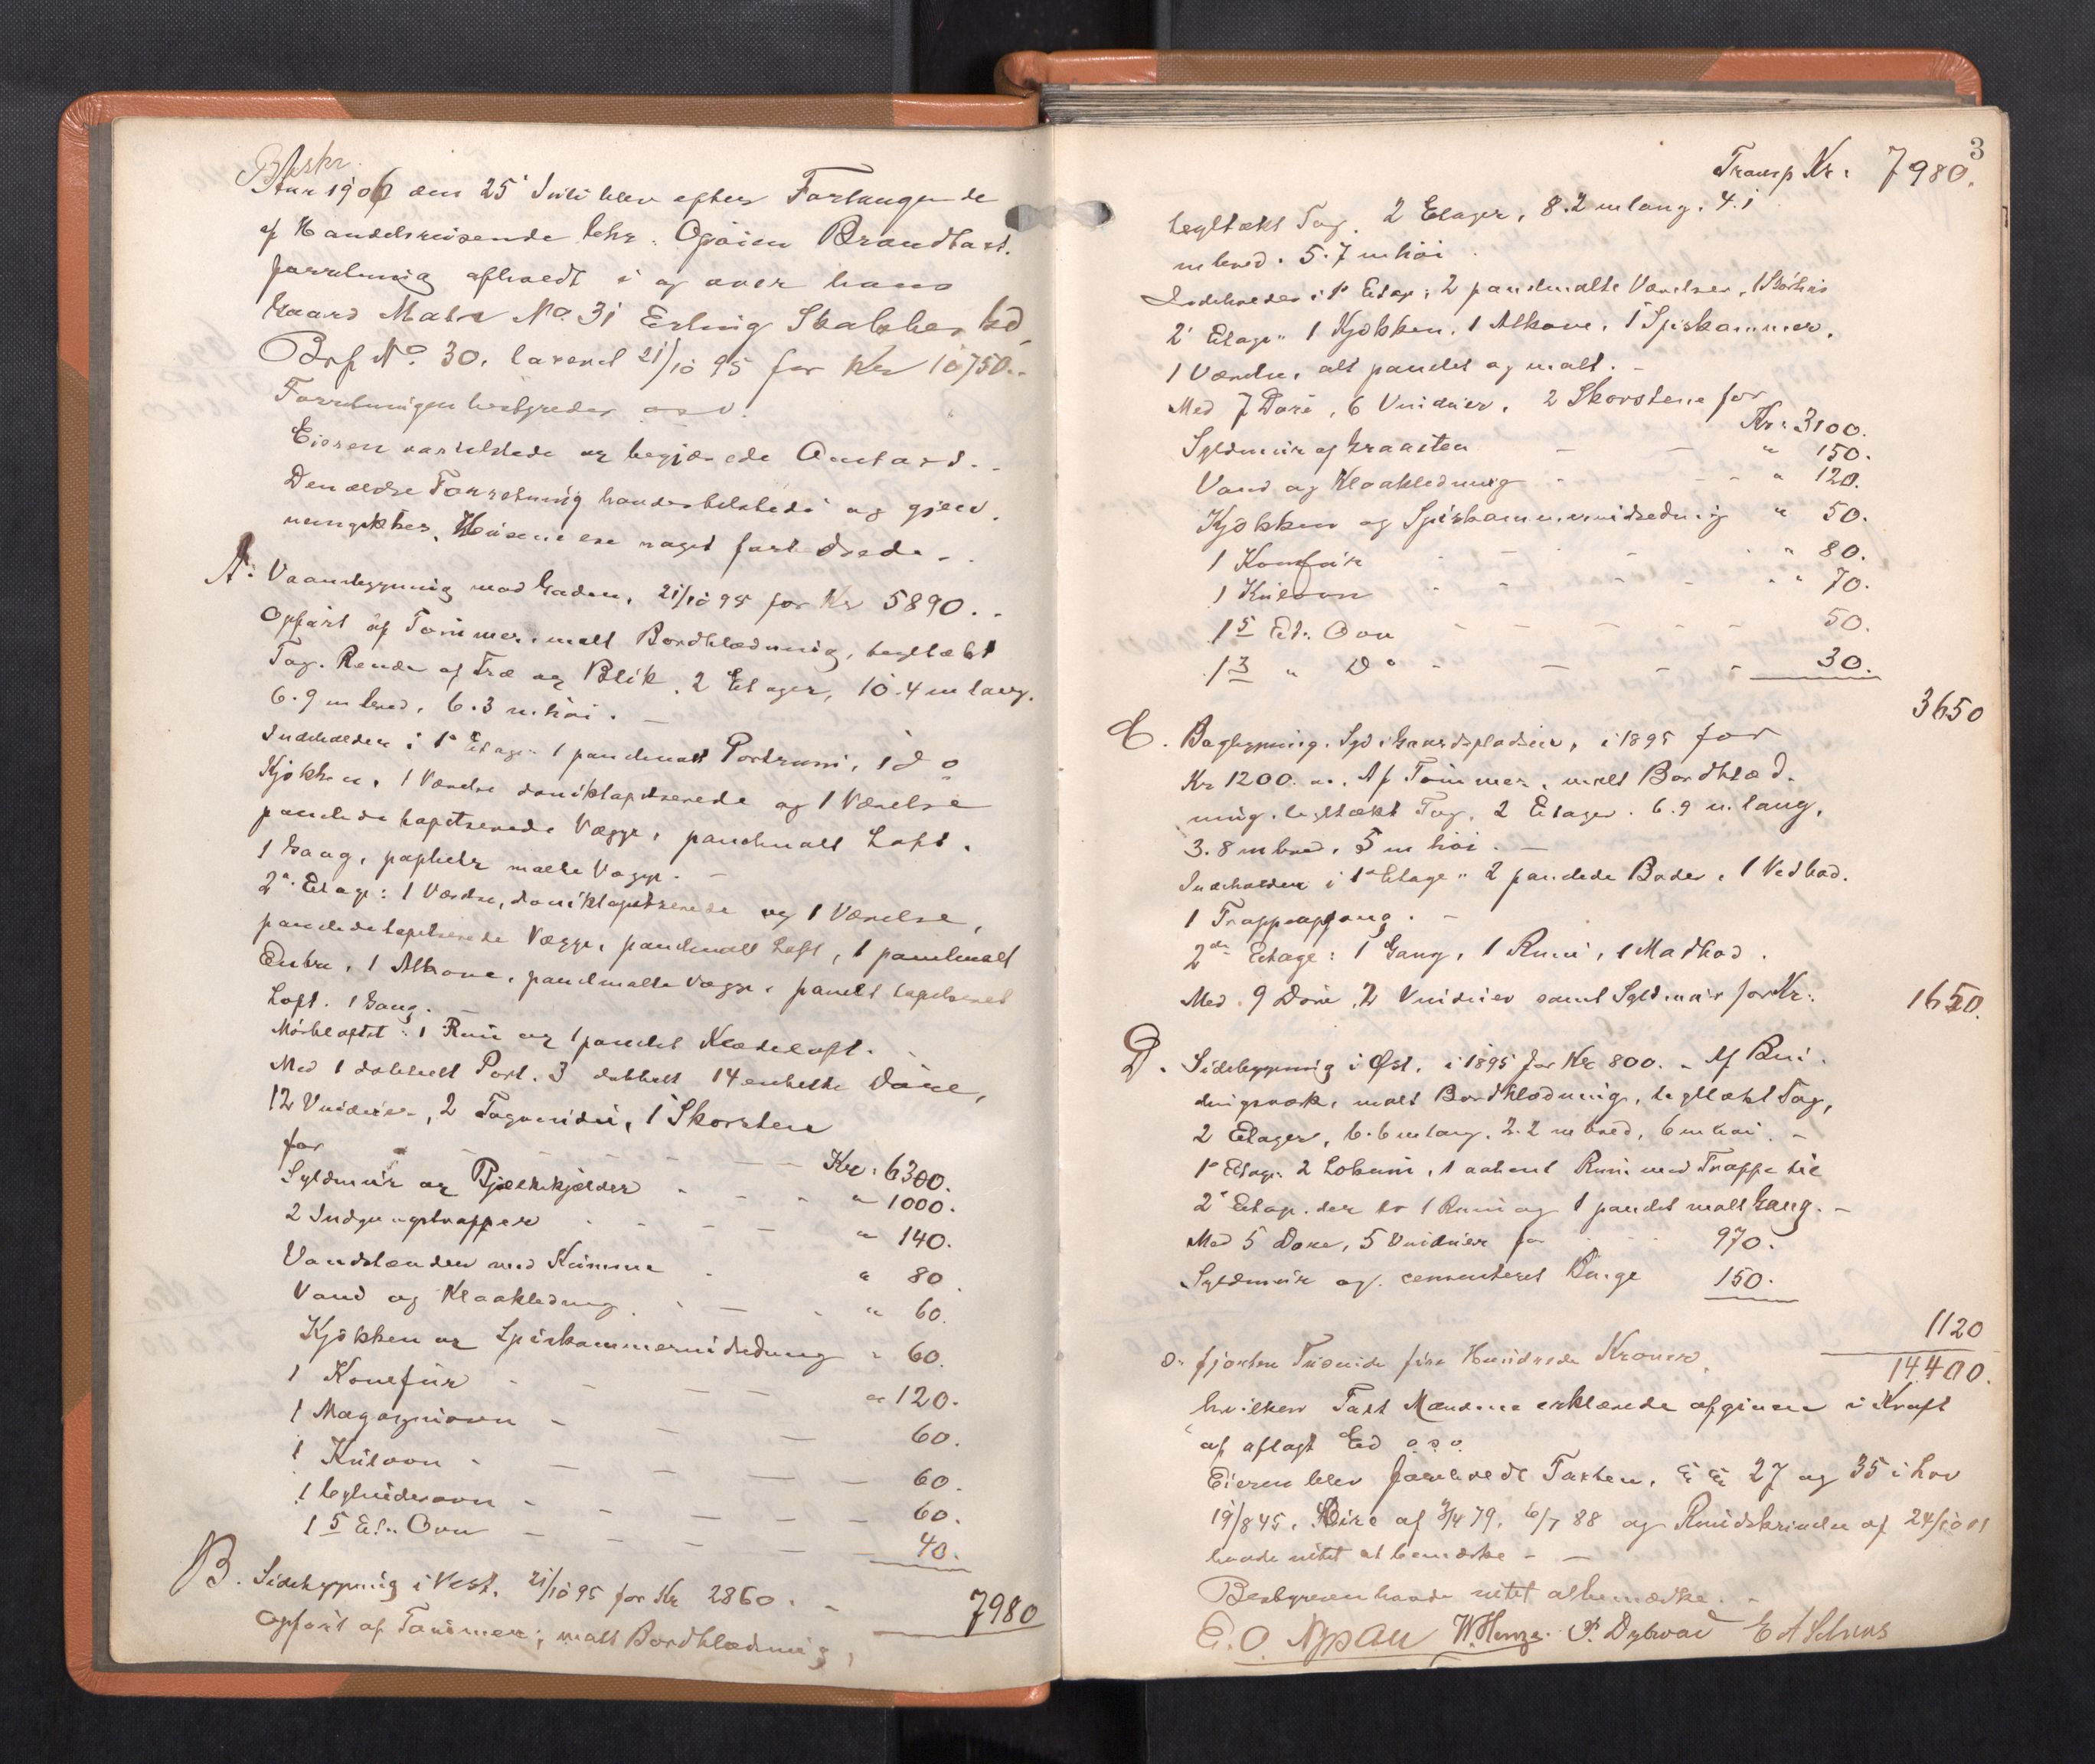 Beskr.
Aar 1906 den 25' Juli blev efter Forlangende
af Handelsreisende Chr. Opøien Brandtaxt.
forretning afholdt i og over hans
Gaard Matr No. 31 Erling Skakkes Gd,
Brf No. 30. laverd 21/10 95 for Kr 10750.-
Forretningen bestyredes o s v.
Eieren var tilstede og begjærede Omtaxt. -
Den ældre Forretning havdes tilstede og gjen-
nemgikkes. Husene ere noget forbedrede. -
A. Vaaningbygning mod Gaden, 21/10 95 for Kr 5890. -
Opført af Tømmer, malt Bordklædning, tegltækt
Tag. Rende af Træ og Blik. 2 Etager, 10.4 m lang.
6.9 m bred, 6.3 m høi. -
Indeholder i 1e Etage: 1 panelmalt Portrum, 1 do
Kjøkken, 1 Værelse tapetserede og 1 Værelse
panelede tapetserede Vægge, panelmalt Loft.
1 Gang, malte Vægge. -
2e Etage: 1 Værelse, tapetserede og 1 Værelse,
panelede tapetserede Vægge, panelmalt Loft, 1 panelmalt
Entre, 1 Alkove, panelmalte Vægge, panelt tapetseret
Loft. 1 Gang. -
Mørkloftet: 1 Rum og 1 panelet Klædeloft. -
Med 1 dobbelt Port. 3 dobbelt 14 enkelte Døre,
12 Vinduer, 2 Tagvindu, 1 Skorsten
for - - - - - Kr. 6300.
Syldmur og Bjelkekjelder - - - " 1000.
2 Indgangstrapper - - - - " 140.
Vandstænder med Kumme - " 80
Vand og Kloakledning - - - " 60.
Kjøkken og Spiskammerindredning " 60.
1 Komfur - - - - " 120.
1 Magasinovn - - - 60.
1 Kulovn - - - - - 60.
1 Cylinderovn - - - - - 60.
1 5 Et. Ovn - - - - - 40.
7980
B. Sidebygning i Vest. 21/10 95 for Kr 2860. -
Opført af Tømmer; malt Bordklædning,
3
Transp Kr. 7980.
tegltækt Tag. 2 Etager, 8.2 m lang. 4.1
m bred. 5.7 m høi.
Indeholder i 1e Etage: 2 panelmalte Værelser, 1 Bórhus
2' Etage: 1 Kjøkken, 1 Alkove, 1 Spiskammer,
1 Værelse, alt panelet og malt. -
Med 7 Døre, 6 Vinduer, 2 Skorstene for
Kr. 3100.
Syldmur af Graasten - - " 150.
Vand og Kloakledning - - - " 120.
Kjøkken og Spiskammerindredning " 50.
1 Komfur - - - - " 80.
1 Kulovn - - - - " 70.
1 5 Et. Ovn - - - - - 50.
1 3 " Do - - - - 30.
3650
C. Bagbygning. Syd i Gaardspladsen, i 1895 for
Kr 1200. -. Af Tømmer, malt Bordklæd-
ning, tegltækt Tag, 2 Etager. 6.9 m. lang,
3.8 m bred, 5 m høi. -
Indeholder i 1e Etage: 2 panelede Boder, 1 Vedbod.
1 Trappeopgang. -
2den Etage: 1 Gang, 1 Rum, 1 Madbod.
Med 9 Døre, 2 Vinduer samt Syldmur for Kr. 1650.
D. Sidebygning i Øst. i 1895 for Kr 800. - Af Bin-
dingsværk, malt Bordklædning, tegltækt Tag,
2 Etager, 6.6 m lang, 2.2 m bred, 6 m høi. -
1e Etage: 2 Lokum, 1 aabent Rum med Trappe til
2' Etage. der er 1 Rum og 1 panelet malt Gang. -
Med 5 Døre, 5 Vinduer for - - 970.
Syldmur og cementeret Binge 150.
1120
14400.
er fjorten Tusinde fire Hundrede Kroner,
hvilken Taxt Mændene erklærede afgiven i Kraft
af aflagt Ed o.s.v.
Eieren blev forelæst Taxten, §§ 27 og 35 i Lov
19/8 45, Dire af 3/4 79, 6/7 88 og Rundskrivelse af 24/10 01
havde intet at bemærke. - -
Bestyreren havde intet at bemærke. -
E. O. Nypan W. Henze. P. Dybwad E A Schius